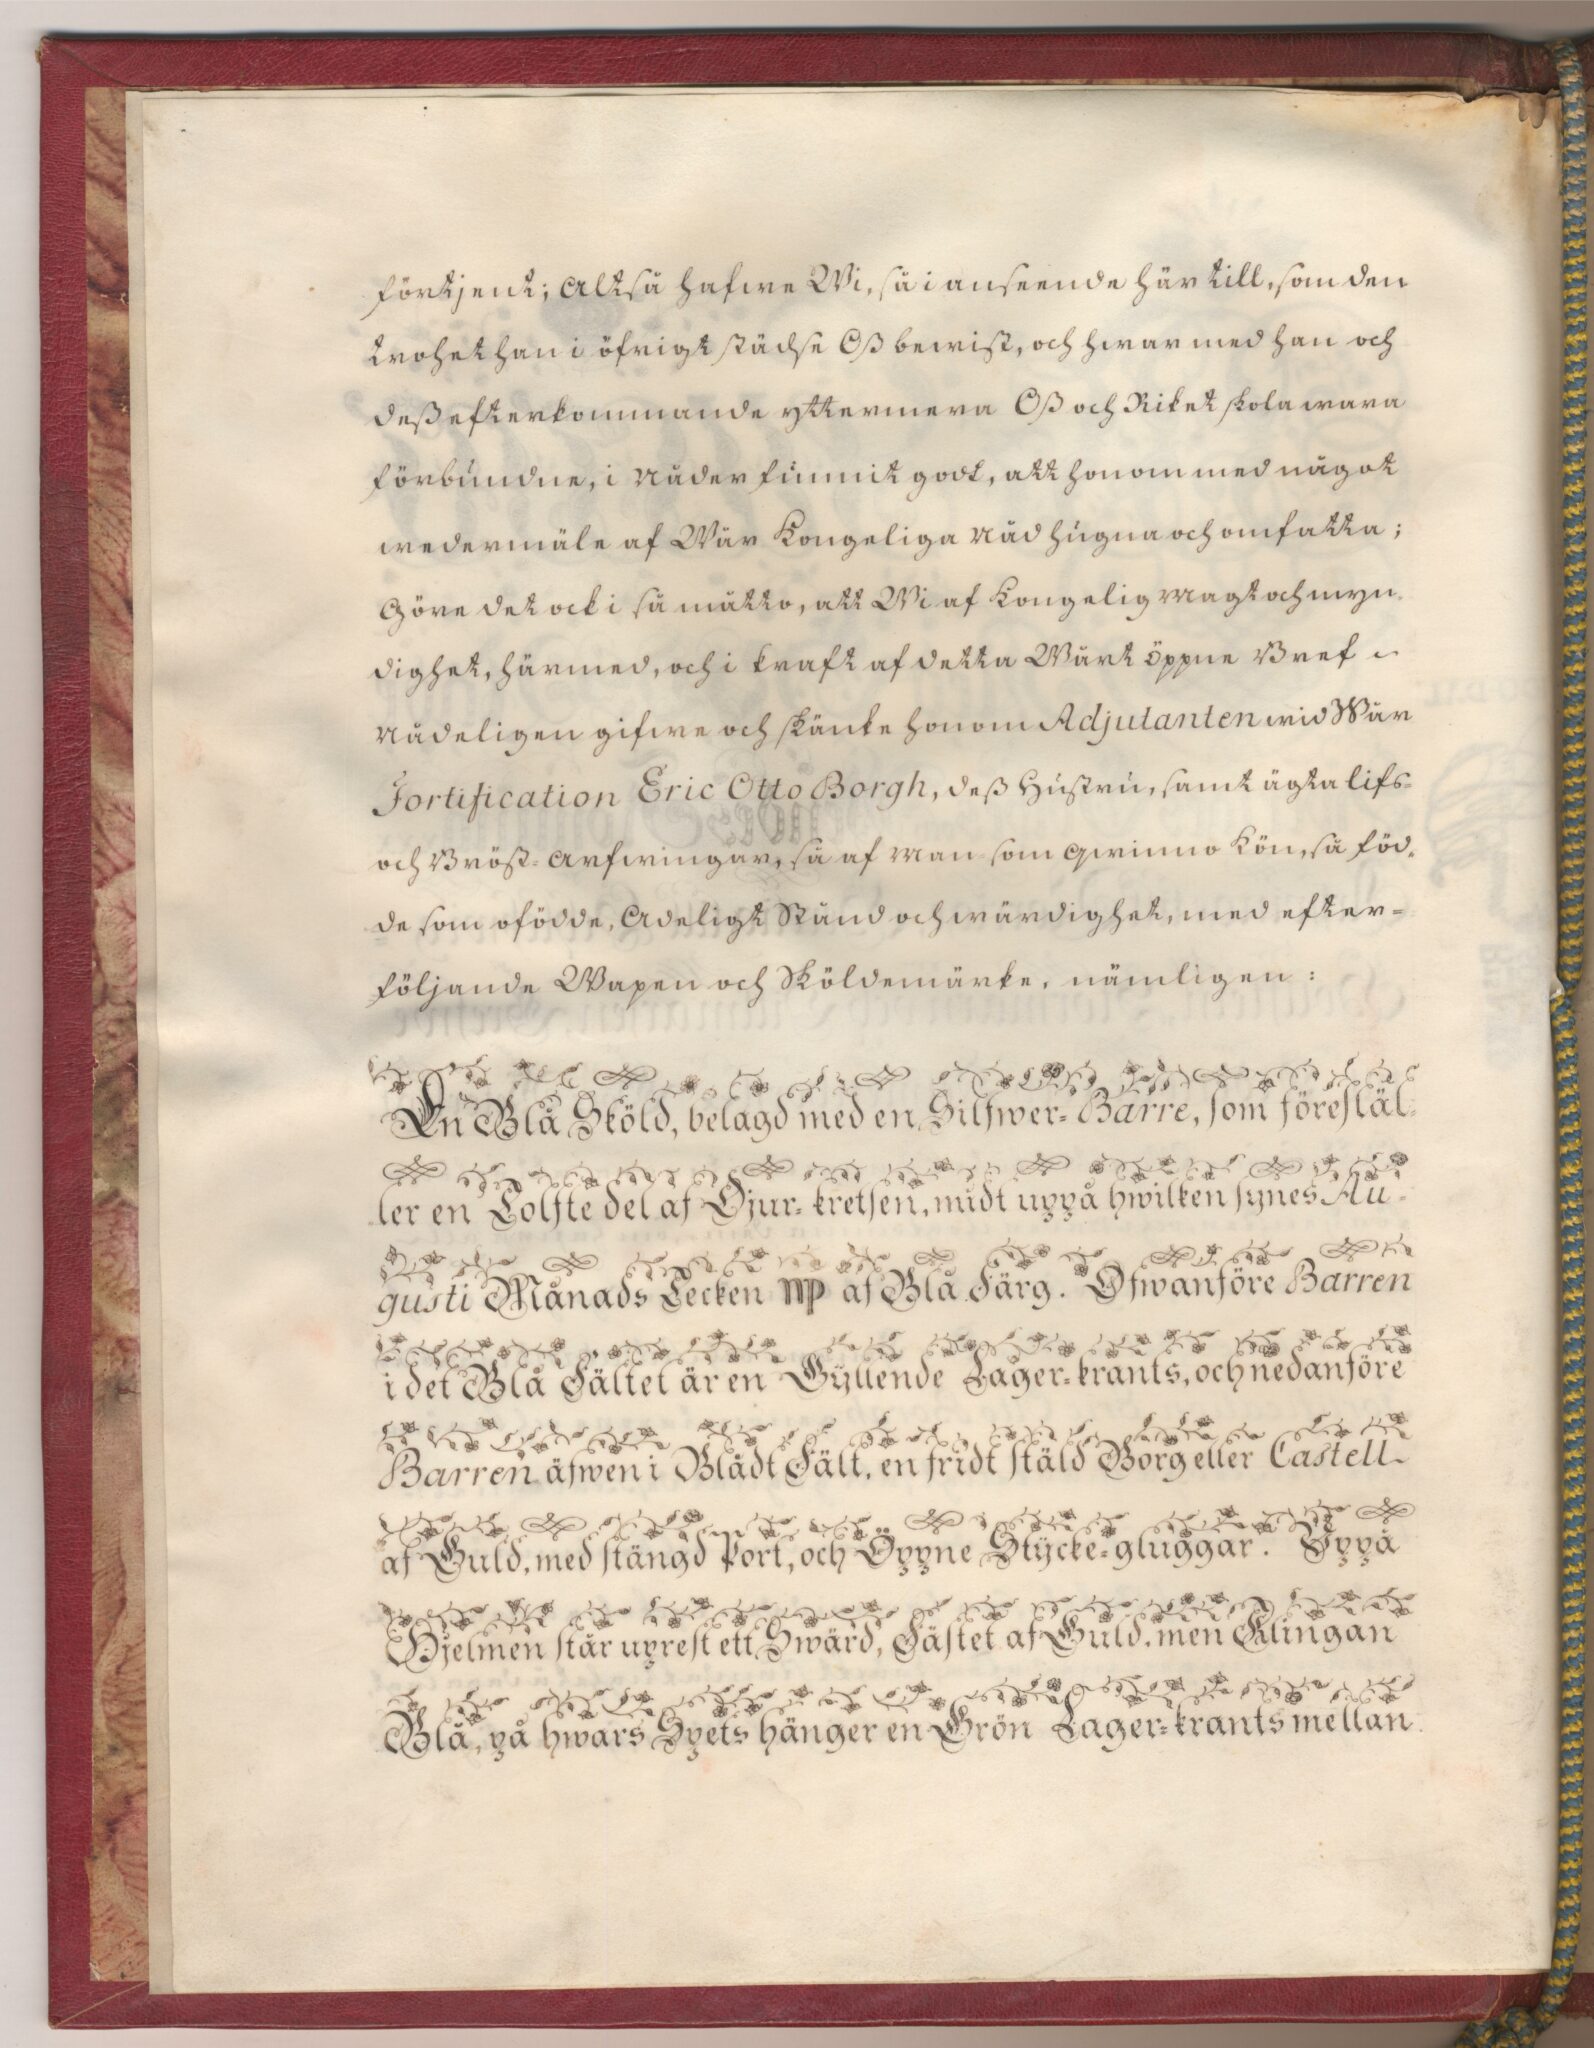 förtjent; Altså hafwe Wi, så i anseende här till, som den
trohet han i öfrigt städse Oß bewist, och hwarmed han och
deß efterkommande yttermera Oß och Riket skola wara
förbundne, i Nåder funnit godt, att honom med något
wedermäle af Wår Kongeliga Nåd hugna och omfatta;
Göre det ock i så mätto, att Wi af Kongelig Magt och myn-
dighet, härmed, och i kraft af detta Wårt öppne Bref
Nådeligen gifwe och skänke honom Adjutanten wid Wår
Fortification Eric Otto Borgh, deß Hustru, samt ägta lifs-
och Bröst-Arfwingar, så af Man- som Qwinno Kön, så föd-
de som ofödde, Adeligt Stånd och wärdighet, med efter-
följande Wapen och Sköldemärke, nämligen:
En Blå Sköld, belagd med en Silfwer-Barre, som föreställ-
ler en Tolfte del af Djur-kretsen, midt uppå hwilken synes Au-
gusti Månads Tecken ♍ af Blå Färg. Ofwanföre Barren
i det Blå Fältet är en Gyllende Lager-krants, och nedanföre
Barren äfwen i Blådt Fält, en fridt stäld Borg eller Castell
af Guld, med stängd Port, och Öppne Stycke-gluggar. Uppå
Hjelmen står uprest ett Swärd, Fästet af Guld, men Klingan
Blå, på hwars Spets hänger en Grön Lager-krants mellan